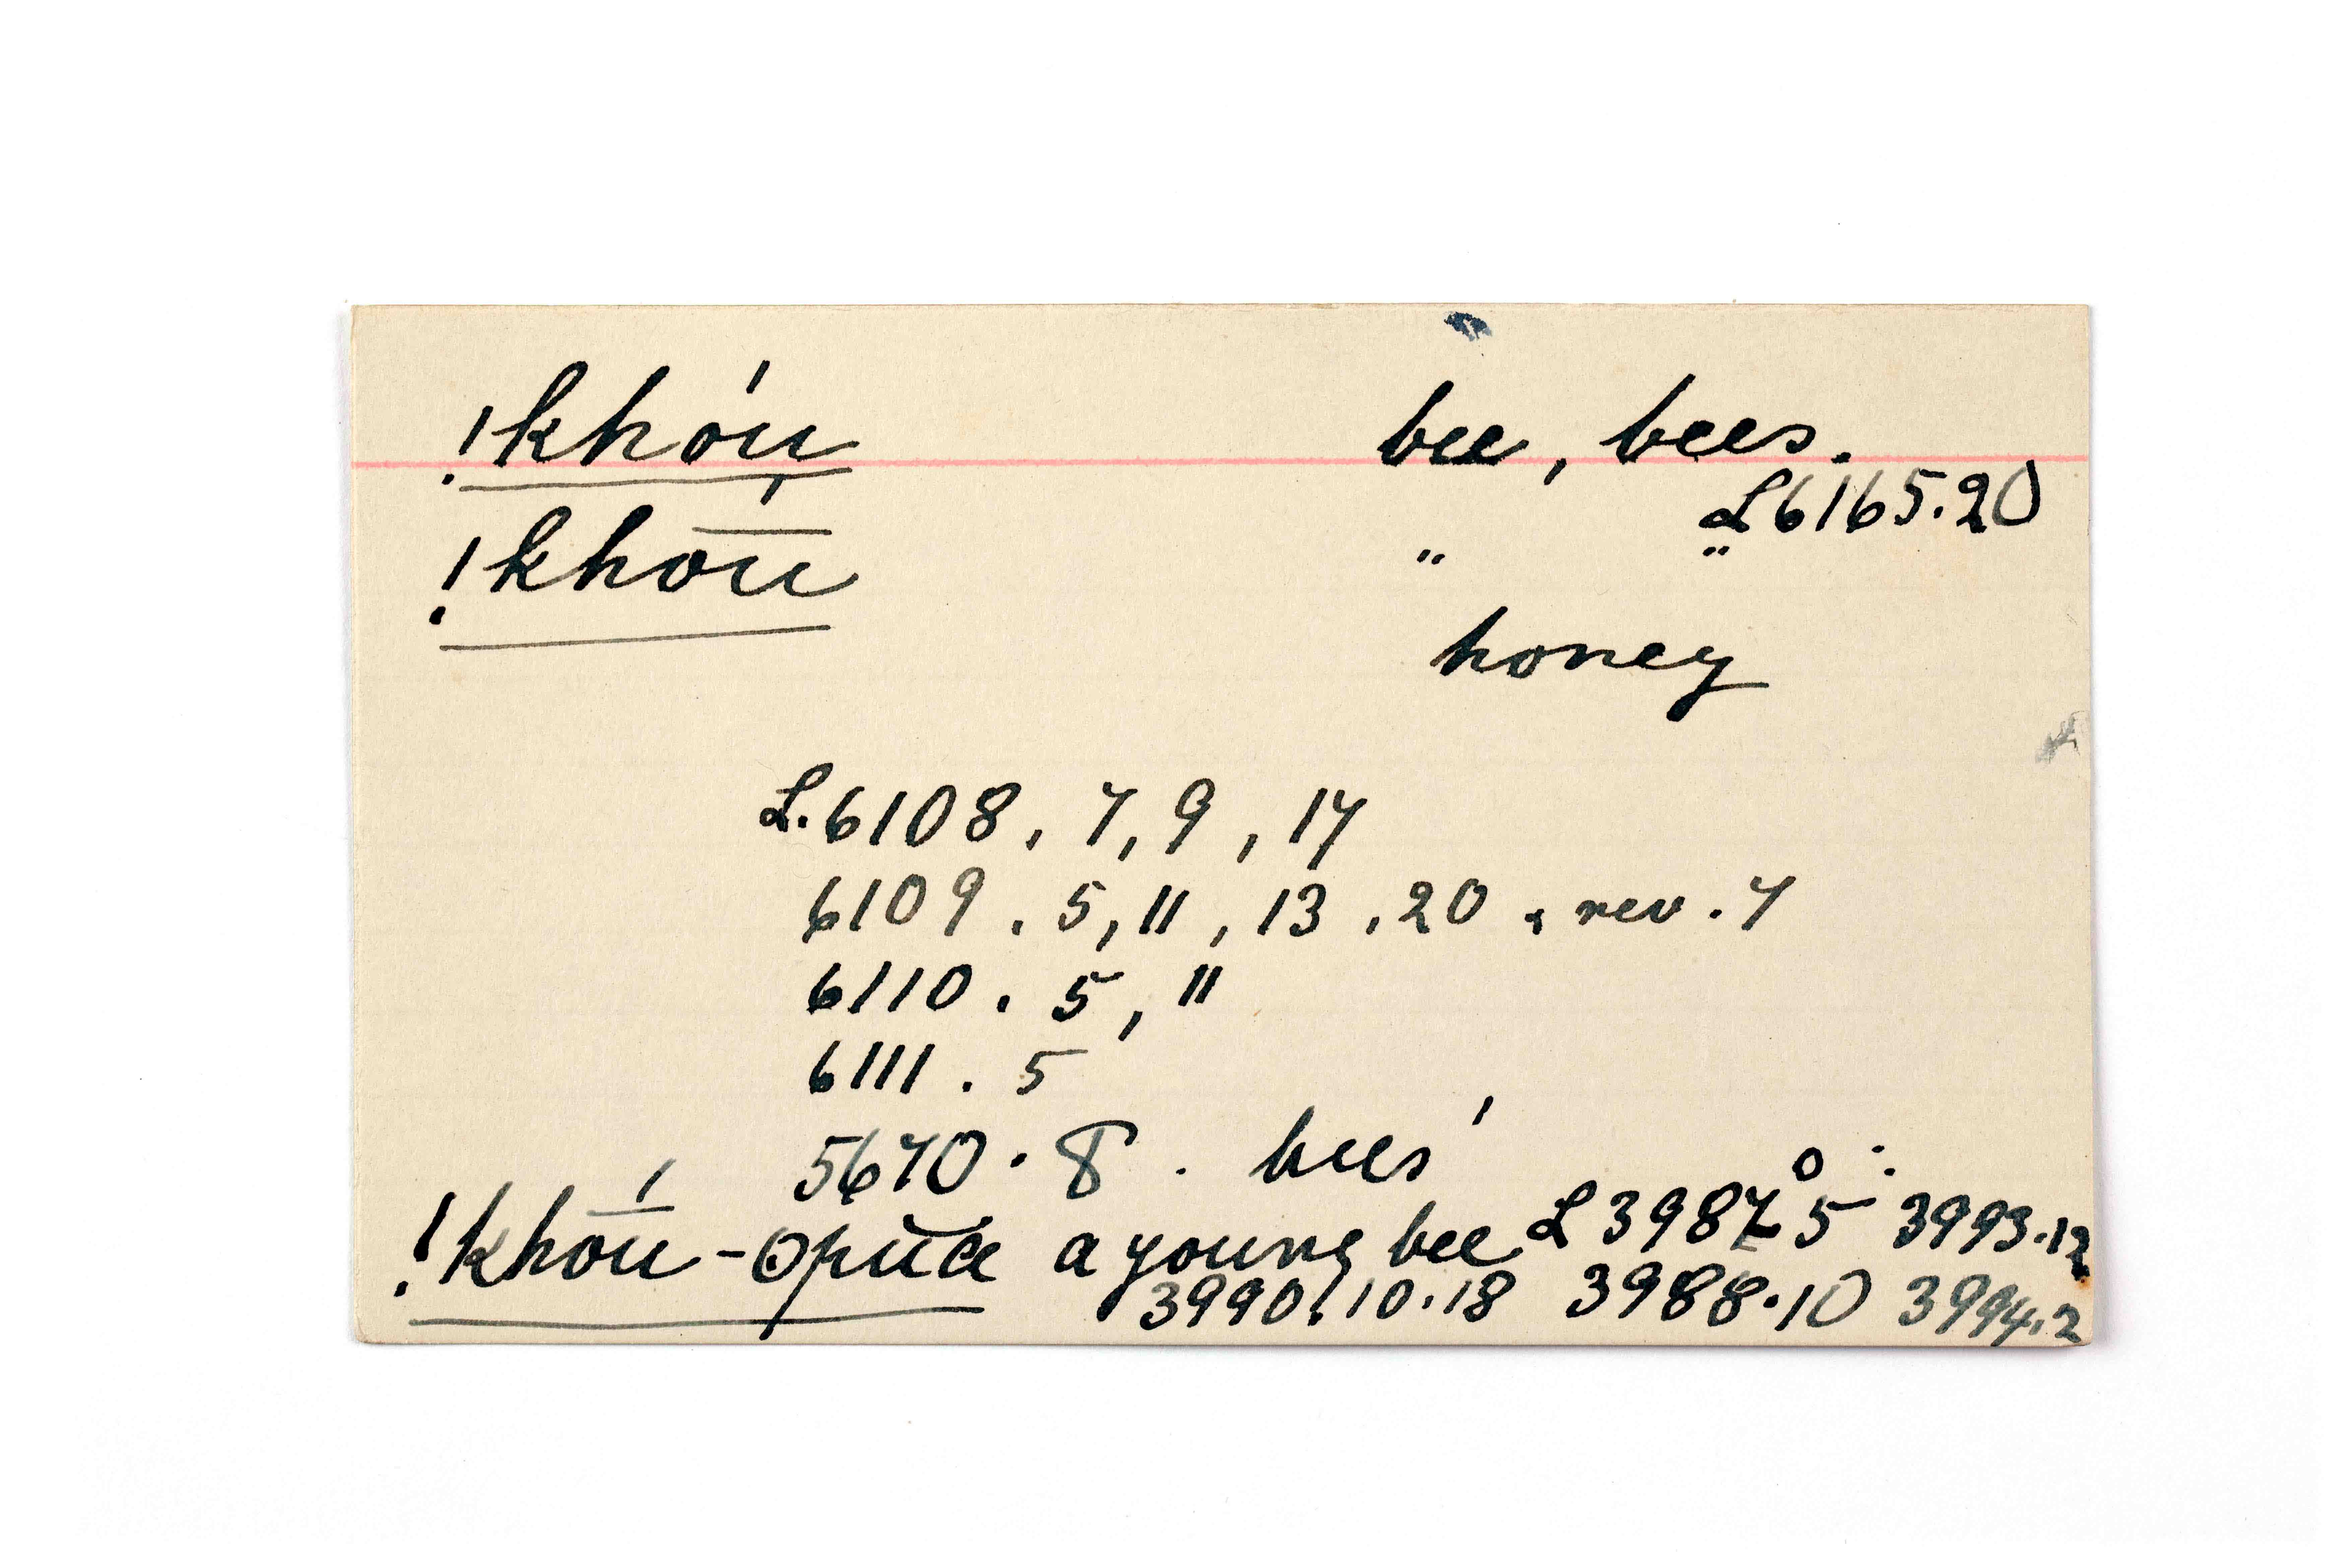 !khóu̱ bee, bees.
L6165.20
!kho͞u " "
honey
L.6108, 7, 9, 17
6109. 5, 11, 13, 20, rev. 7
6110. 5, 11
6111. 5
5670. 8. bees'
!kho͞ú-ʘpŭa a young bee L3987.5 3993.12
3990.10.18 3988.10 3994.2